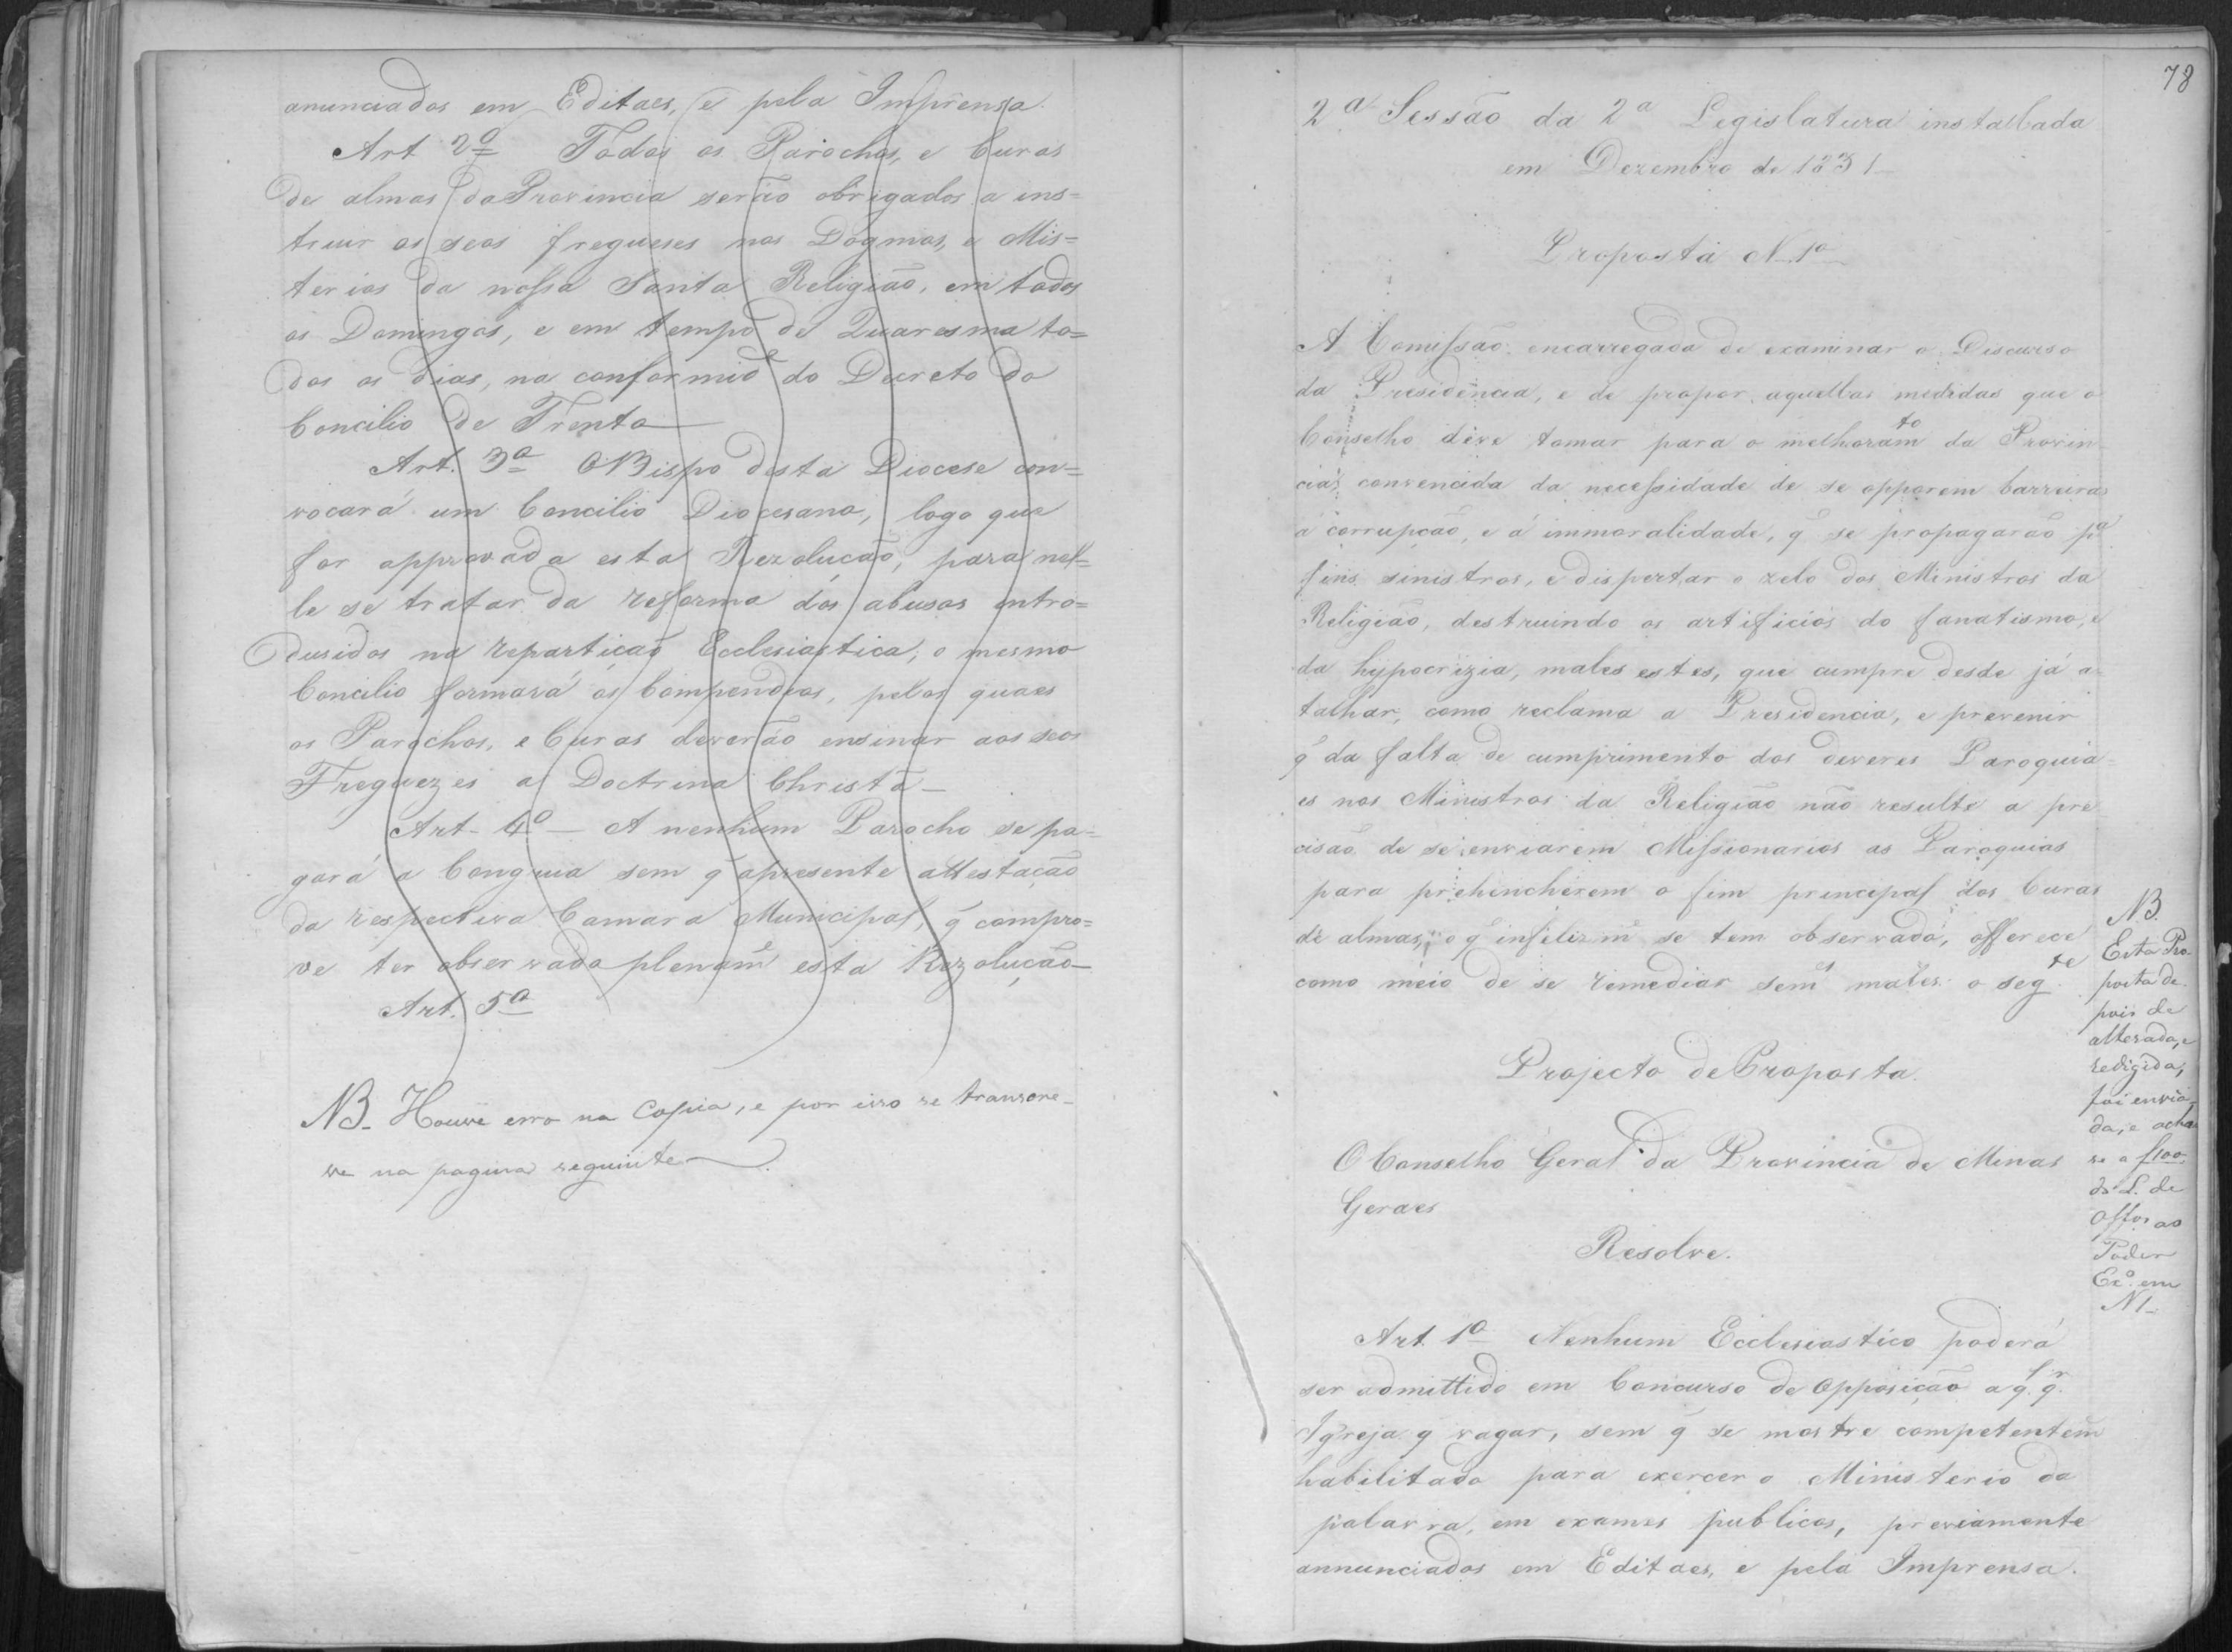 anunciados em Editaes, e pela Imprensa.
Art 2º Todos os Parochos, e Curas
de almas da Provincia serão obrigados a ins=
truir os seos fregueses nos Dogmas, e Mis=
terios da nossa Santa Religião, em todos
os Domingos, e em tempo de Quaresma to=
dos os dias, na conformide do Decreto do
Concilio de Trento
Art. 3º O Bispo desta Diocese con=
vocará um Concilio Diocesano, logo que
for approvada esta Rezolução, para nel=
le se tratar da reforma dos abusos intro=
dusidos na repartição Ecclesiastica; o mesmo
Concilio formará os Compendios, pelos quaes
os Parochos, e Curas deverão ensinar aos seos
Freguezes a Doctrina Christã_
Art. 4º_ A nenhum Parocho se pa=
gará a Congrua sem q̃ apresente attestação
da respectiva Camara Municipal, q̃ compro=
ve ter observado plenamẽ esta Rezolução_
Art. 5º
NB_ Houve erro na Copia, e por isso se transcre_
ve na pagina seguinte.
78
2ª Sessão da 2ª Legislatura installada
em Dezembro de 1831_
Proposta N. 1º
A Comissão encarregada de examinar o Discurso
da Presidencia, e de propor aquellas medidas que o
Conselho deve tomar para o melhoramto da Provin
cia, convencida da necessidade de se opporem barreiras
á corrupção, e á immoralidade, q̃ se propagarão pª
fins sinistros, e dispertar o zelo dos Ministros da
Religião, destruindo os artificios do fanatismo, e
da hypocrizia, males estes, que cumpre desde já a=
talhar, como reclama a Presidencia, e prevenir
q̃ da falta de cumprimento dos deveres Paroquia=
es nos Ministros da Religião não resulte a pre
cisão de se enviarem Missionarios as Paroquias
para prehencherem o fim principal dos Curas
de almas, o q̃ infelizmẽ se tem observado, offerece
como meio de se remediar semes males o segte
Projecto de Proposta.
O Conselho Geral da Provincia de Minas
Geraes
Resolve.
Art. 1º Nenhum Ecclesiastico poderá
ser admittido em Concurso de Opposição a qlqr
Igreja q̃ vagar, sem q̃ se mostre competentem̃
habilitado para exercer o Ministerio da
palavra, em exames publicos, previamente
annunciados em Editaes, e pela Imprensa.
NB.
Esta Pro-
posta de
pois de
alterada, e
redigida,
foi envia-
da, e acha
se a f100
do L. de
Offos ao
Poder
Exº. em
N1_